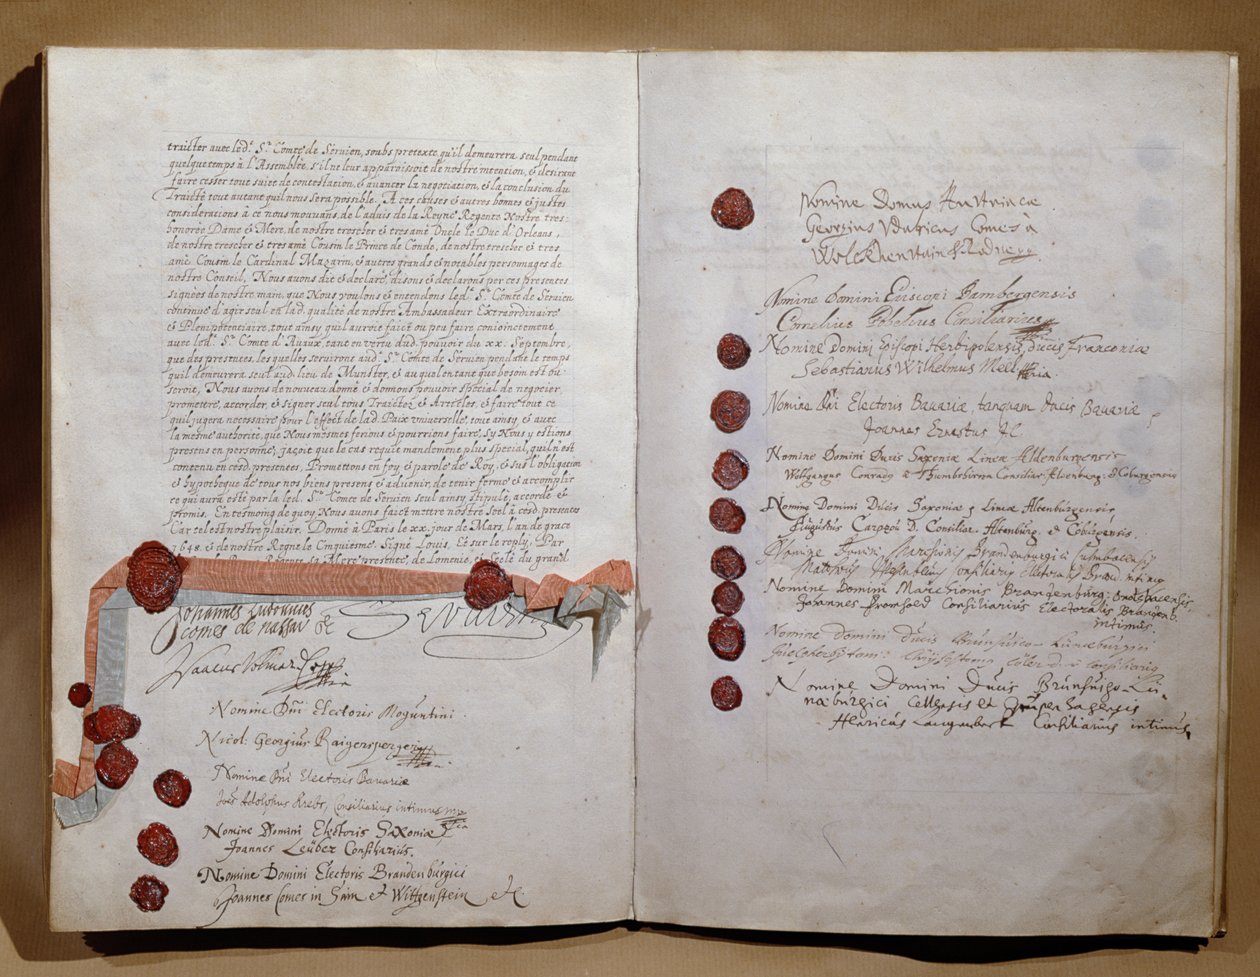 traicter avec led. Sr. Comte de Servien, soubs pretexte qu'il demeurera seul pendant
quelque temps à l'Assemblée, s'il ne leur apparoissoit de nostre intention, & desirant
faire cesser tout sujet de contestation, & avancer la negociation, & la conclusion du
Traicté tout autant quil nous sera possible. A ces causes & autres bonnes & justes
considerations à ce nous mouvans, de l'advis de la Reyne Regente Nostre tres-
honorée Dame & Mere, de nostre trescher & tres amé Oncle le Duc d'Orleans,
de nostre trescher & tres amé Cousin le Prince de Condé, de nostre trescher & tres
amé Cousin le Cardinal Mazarin, & autres grands & notables personnages de
nostre Conseil, Nous avons dit & declaré, disons & declarons par ces presentes
signées de nostre main, que Nous voulons & entendons led. Sr. Comte de Servien
continue d'agir seul en lad. qualité de nostre Ambassadeur Extraordinaire
& Plenipotenciaire, tout ainsy qu'il auroit faict ou peu faire conjoinctement
avec led. Sr. Comte d'Avaux, tant en vertu dud. pouvoir du xx. Septembre,
que des presentes, les quelles serviront aud. Sr. Comte de Servien pendant le temps
qu'il demeurera seul aud. lieu de Munster, & au quel entant que besoin est ou
seroit, Nous avons de nouveau donné & donnons pouvoir special de negocier,
promettre, accorder, & signer seul tous Traictez & Articles, & faire tout ce
quil jugera necessaire pour l'effect de la d. Paix universelle, tout ainsy, & avec
la mesme authorité, que Nous mesmes ferions & pourrions faire, sy Nous y estions
presens en personne, jaçoit que le cas requit mandement plus special, qu'il n'est
contenu en cesd. presentes, Promettons en foy & parole de Roy, & sus l'obligation
& hypoteque de tous nos biens presens & advenir, de tenir ferme & accomplir
ce qui aura esté par la led. Sr. Comte de Servien seul ainsy stipulé, accordé &
promis. En tesmoing de quoy Nous avons faict mettre nostre Seel à cesd. presentes
Car tel est nostre plaisir. Donné à Paris le xx. jour de Mars, l'an de grace
1648. & de nostre Regne le Cinquiesme. Signé Louis. Et sur le reply, Par
la Reyne Regente sa Mere presente, de Lomenie, & Seelé du grand
Johannes Ludovicus
comes de Nassau &c
Servien
Isaacus Volmar
Nomine Dni Electoris Moguntini.
Nicol: Georgius Raigersperger
Nomine Dni Electoris Bavariæ
Joes Adolphus Krebs, Consiliarius intimus
Nomine Domini Electoris Saxoniæ
Joannes Leuber Consiliarius.
Nomine Domini Electoris Brandenburgici
Joannes Comes in Sain et Wittgenstein &c
Nomine Domus Austriacæ
Georgius Udaricus Comes à
Wolckhenstain & Rodnegg.
Nomine Domini Episcopi Bambergensis
Cornelius Gobelius Consiliarius
Nomine Domini Episcopi Herbipolensis, ducis Franconiæ
Sebastianus Wilhelmus Meel
Nomine Dni Electoris Bavariæ, tanquam ducis Bavariæ
Joannes Ernestus
Nomine Domini Ducis Saxoniæ Lineæ Altenburgensis
Wolfgangus Conradus à Thumbshirrn Consiliar. Altenburg. et Coburgensis
Nomine Domini Ducis Saxoniæ Lineæ Altenburgensis
Augustus Carpzov D. Consiliar. Altenburg. & Coburgensis.
Nomine Domini Marchionis Brandenburgici Culmbacensis
Matthæus Wesenbecius Consiliarius Electoralis Brand. intimus
Nomine Domini Marchionis Brandenburg: Onolzbacensis,
Joannes Fromhold Consiliarius Electoralis Brandenb.
intimus.
Nomine Domini Ducis Brunsvico Luneburgici
Guelpherbytani Chrysostomus Coler D. Consiliarius
Nomine Domini Ducis Brunsvico-Lu-
næburgici Cellensis et Grubenhagensis
Henricus Langenbeck Consiliarius intimus